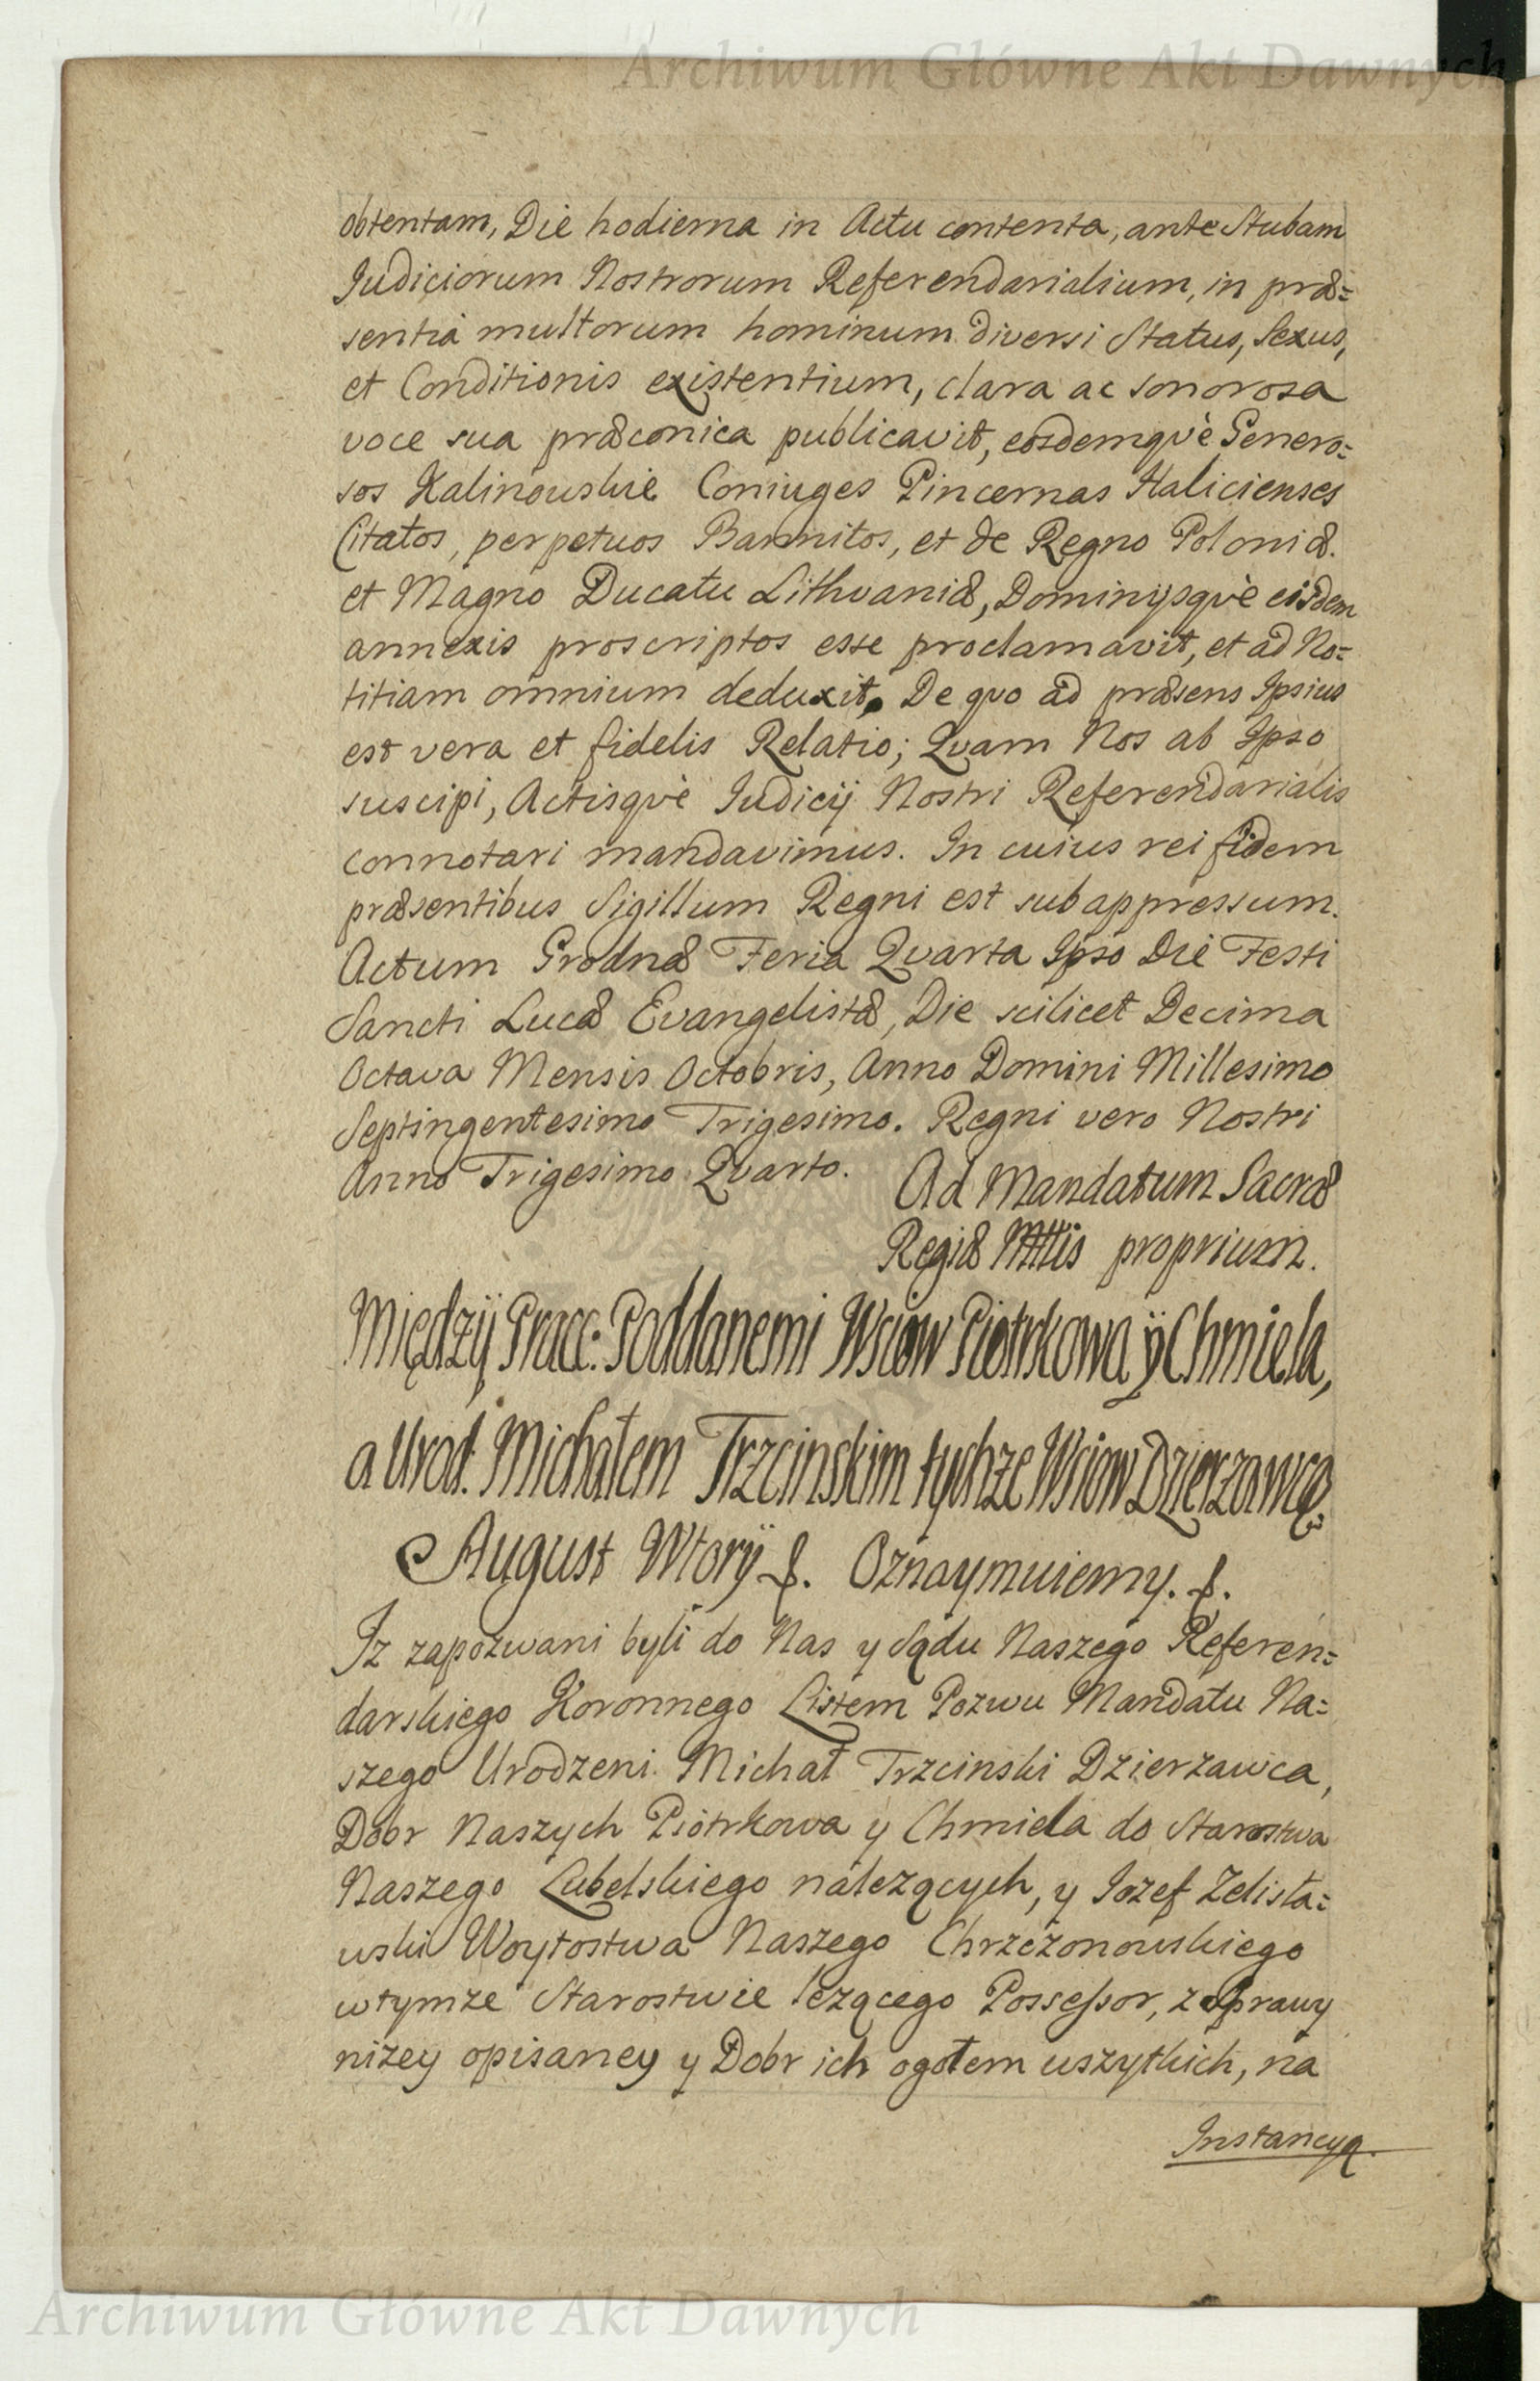 Archiwum Główne Akt Dawnych
obtentam, Die hodierna in Actu contenta, ante Stubam
Judiciorum Nostrorum Referendarialium, in præ=
sentia multorum hominum diversi Status, Sexus,
et Conditionis existentium, clara ac sonorosa
voce sua præconica publicavit, eosdemqve Genero=
sos Kalinowskie Coniuges Pincernas Halicienses
Citatos, perpetuos Bannitos, et de Regno Poloniæ.
et Magno Ducatu Lithvaniæ, Dominijsqve eisdem
annexis proscriptos esse proclamavit, et ad No=
titiam omnium deduxit. De qvo ad præsens Ipsius
est vera et fidelis Relatio; Qvam Nos ab Ipso
suscipi, Actisqvè Judicij Nostri Referendarialis
connotari mandavimus. In cuius rei fidem
præsentibus Sigillum Regni est subappressum.
Actum Grodnæ Feria Qvarta Ipso Die Festi
Sancti Lucæ Evangelistæ, Die scilicet Decima
Octava Mensis Octobris, Anno Domini Millesimo
Septingentesimo Trigesimo. Regni vero Nostri
Anno Trigesimo Qvarto. Ad Mandatum Sacræ
Regiæ Mttis proprium.
Między Pracc: Poddanemi Wsiow Piotrkowa ÿ Chmiela,
a Urod. Michałem Trzcinskim tychze Wsiow Dzierzawcą.
August Wtorÿ f. Oznaymuiemy. f.
Iz zapozwani byli do Nas y Sądu Naszego Referen=
darskiego Koronnego Listem Pozwu Mandatu Na=
szego Urodzeni Michał Trzcinski Dzierzawca,
Dobr Naszych Piotrkowa y Chmiela do Starostwa
Naszego Lubelskiego nalezących, y Iozef Zelisła=
wski Woytostwa Naszego Chrzczonowskiego
wtymze Starostwie lezącego Possessor, z osprawy
nizey opisaney y Dobr ich ogołem wszytkich, na
Instancyą.
Archiwum Główne Akt Dawnych